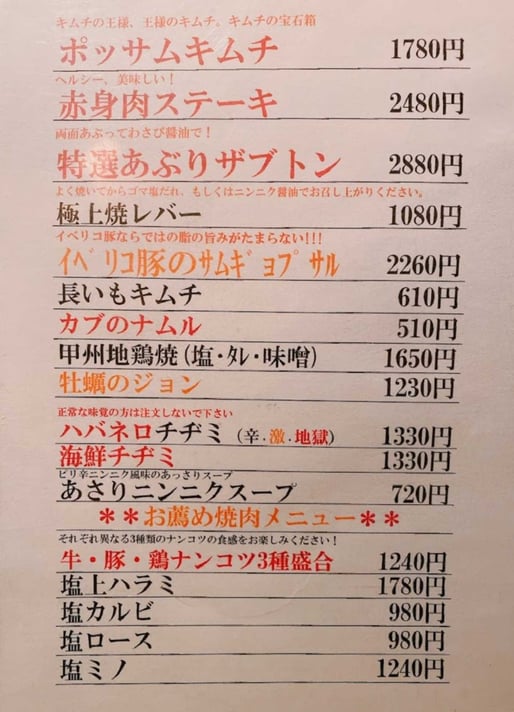 キムチの王様、王様のキムチ。キムチの宝石箱
ポッサムキムチ 1780円
ヘルシー、美味しい！
赤身肉ステーキ 2480円
両面あぶってわさび醤油で！
特選あぶりザブトン 2880円
よく焼いてからゴマ塩だれ、もしくはニンニク醤油でお召し上がりください。
極上焼レバー 1080円
イベリコ豚ならではの脂の旨みがたまらない!!!
ｲﾍﾞﾘｺ豚のｻﾑｷﾞｮﾌﾟｻﾙ 2260円
長いもキムチ 610円
カブのナムル 510円
甲州地鶏焼（塩・ﾀﾚ・味噌） 1650円
牡蠣のジョン 1230円
正常な味覚の方は注文しないで下さい
ハバネロチヂミ（辛.激.地獄） 1330円
海鮮チヂミ 1330円
ピリ辛ニンニク風味のあっさりスープ
あさりニンニクスープ 720円
＊＊お薦め焼肉メニュー＊＊
それぞれ異なる3種類のナンコツの食感をお楽しみください！
牛・豚・鶏ナンコツ3種盛合 1240円
塩上ハラミ 1780円
塩カルビ 980円
塩ロース 980円
塩ミノ 1240円